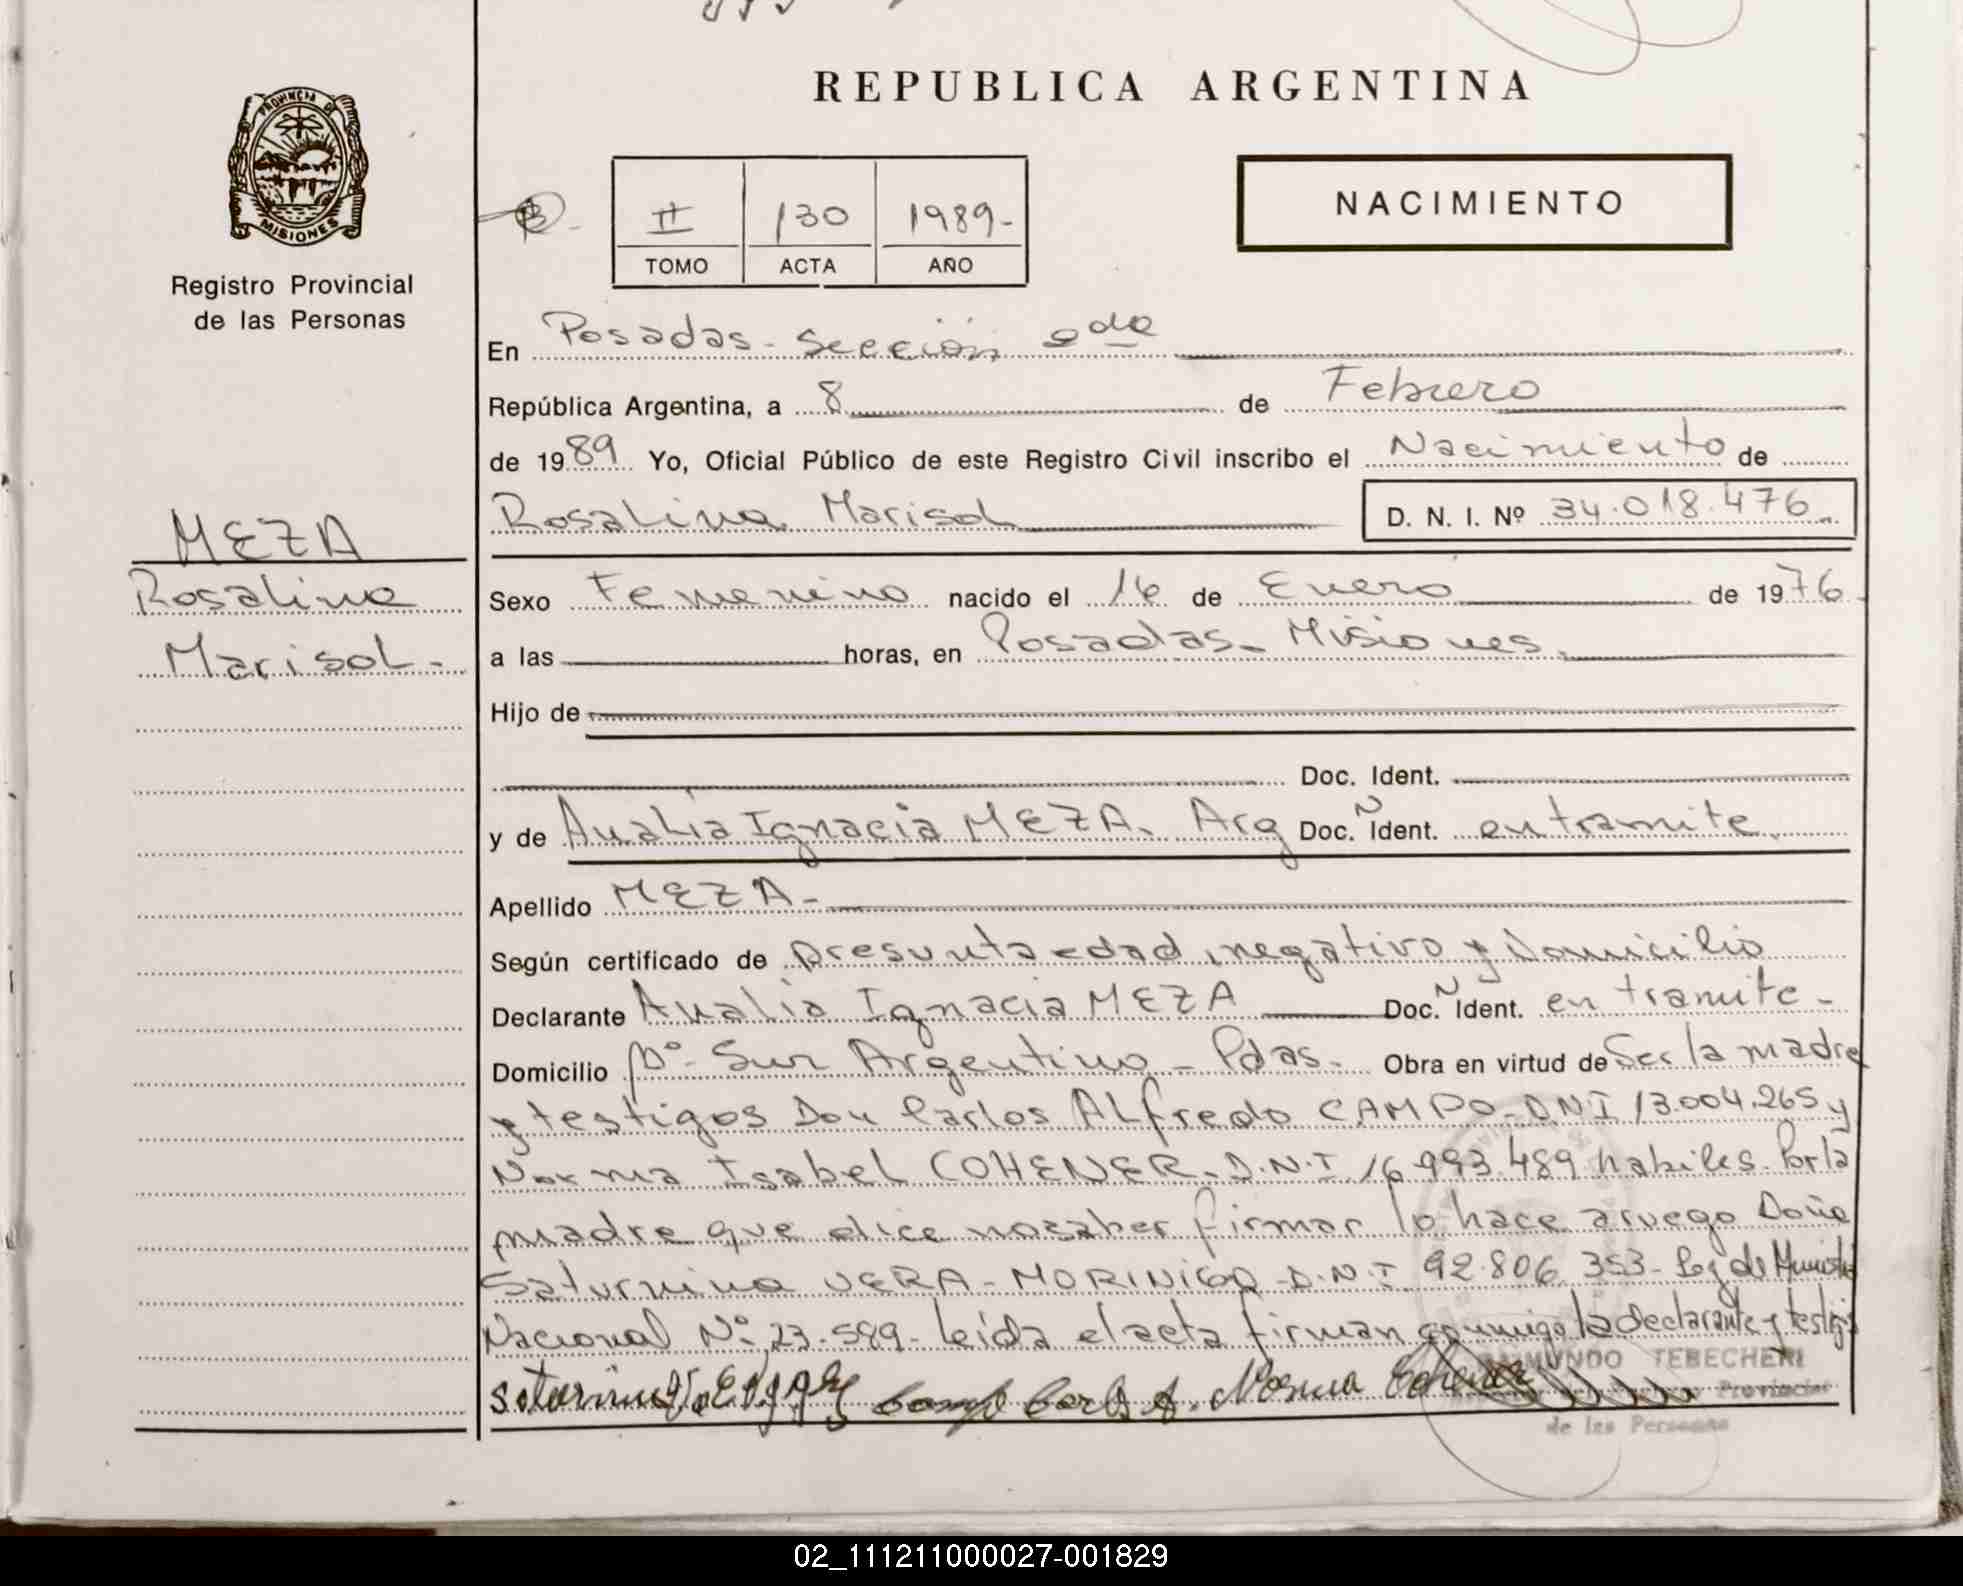 REPUBLICA ARGENTINA
PROVINCIA DE
MISIONES
Registro Provincial
de las Personas
II 130 1989-
TOMO ACTA AÑO
NACIMIENTO
En Posadas - Sección 2da
República Argentina, a 8 de Febrero
de 1989 Yo, Oficial Público de este Registro Civil inscribo el Nacimiento de
Rosalina Marisol D. N. I. Nº 34.018.476
MEZA
Rosalina
Marisol -
Sexo Femenino nacido el 16 de Enero de 1976
a las horas, en Posadas - Misiones.
Hijo de
Doc. Ident.
y de Analia Ignacia MEZA. Arg Doc. Ident. en tramite.
Apellido MEZA -
Según certificado de presunta edad, negativo y Domicilio
Declarante Analia Ignacia MEZA Doc. Ident. en tramite -
Domicilio Bº Sur Argentino - Pdas. Obra en virtud de Ser la madre
y testigos Don Carlos Alfredo CAMPO - DNI 13.004.265 y
Norma Isabel COHENER - D.N.I 16.993.489 habiles. Por la
madre que dice no saber firmar lo hace a ruego Doña
Saturnina VERA - MORINIGO - D.N.I 92.806.353 - Ley de Ministerio
Nacional Nº 23.589 - leida el acta firman conmigo la declarante y testigos
Campo Carlos A. Norma Cohener
RAIMUNDO TEBECHERI
Provincial
de las Personas
02_111211000027-001829